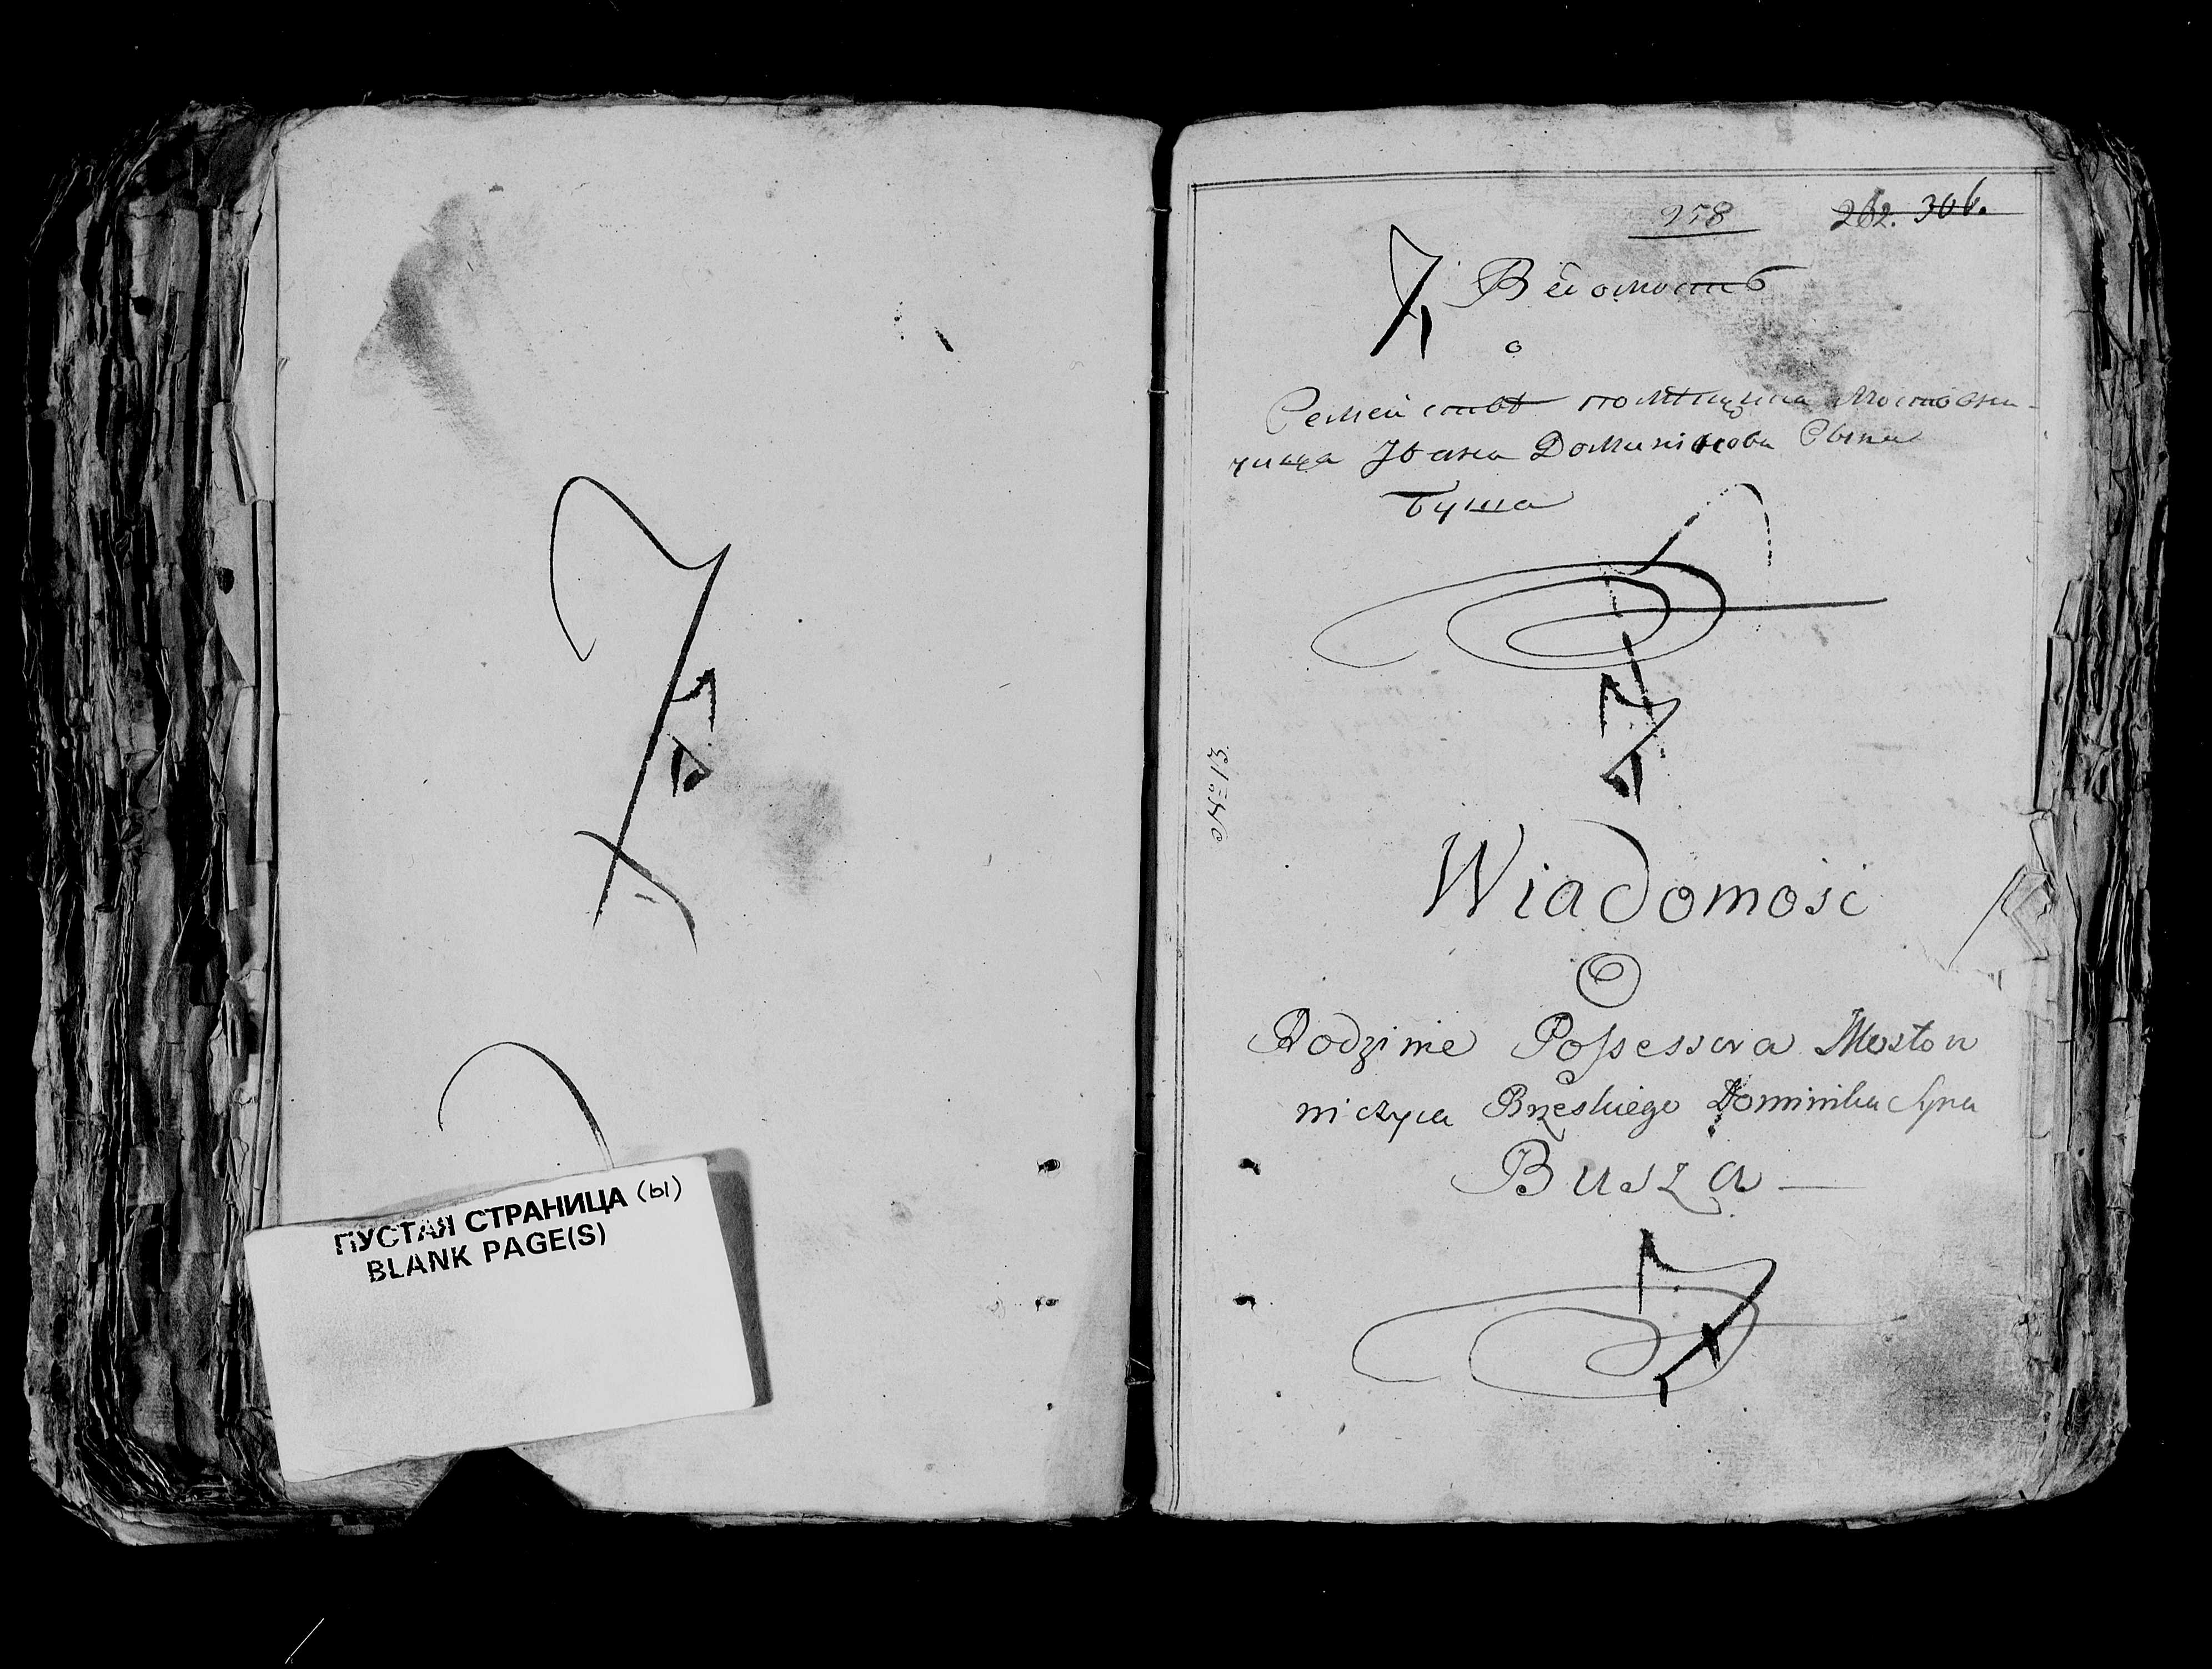 ПУСТАЯ СТРАНИЦА (Ы)
BLANK PAGE(S)
258 262. 306.
Ведомость
о
Семействѣ помѣщика Мостовни-
чища Ивана Доминикова Сына
Буша
№ 13.
Wiadomość
O
Rodzinie Possessora Mostow
niczyca Brzeskiego Dominika Syna
Busza